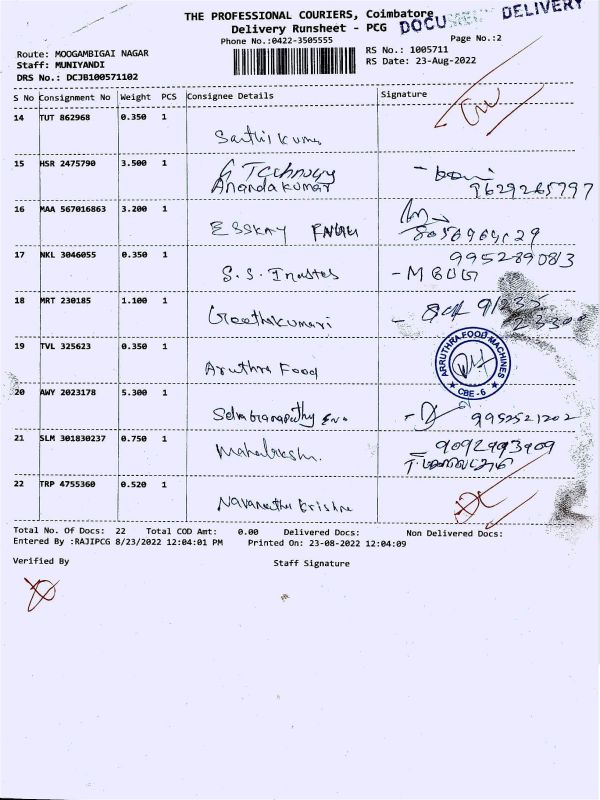 THE PROFESSIONAL COURIERS, Coimbatore
Delivery Runsheet - PCG
DOCUMENT DELIVERY
Phone No.:0422-3505555
Page No.:2
Route: MOOGAMBIGAI NAGAR
RS No.: 1005711
Staff: MUNIYANDI
RS Date: 23-Aug-2022
DRS No.: DCJB100571102
S No Consignment No Weight PCS Consignee Details Signature
14 TUT 862968 0.350 1
Sakthi Kumar
15 HSR 2475790 3.500 1
G Technogy
Anandakumar
9629265797
16 MAA 567016863 3.200 1
ESSKAY
17 NKL 3046055 0.350 1
9952890813
S.S.
18 MRT 230185 1.100 1
Geethakumari
19 TVL 325623 0.350 1
Aruthra Food
ARRUTHRA FOOD MACHINES
CBE-6
20 AWY 2023178 5.300 1
9952521202
21 SLM 301830237 0.750 1
9092993909
22 TRP 4755360 0.520 1
Total No. Of Docs: 22 Total COD Amt: 0.00 Delivered Docs: Non Delivered Docs:
Entered By :RAJIPCG 8/23/2022 12:04:01 PM Printed On: 23-08-2022 12:04:09
Verified By Staff Signature